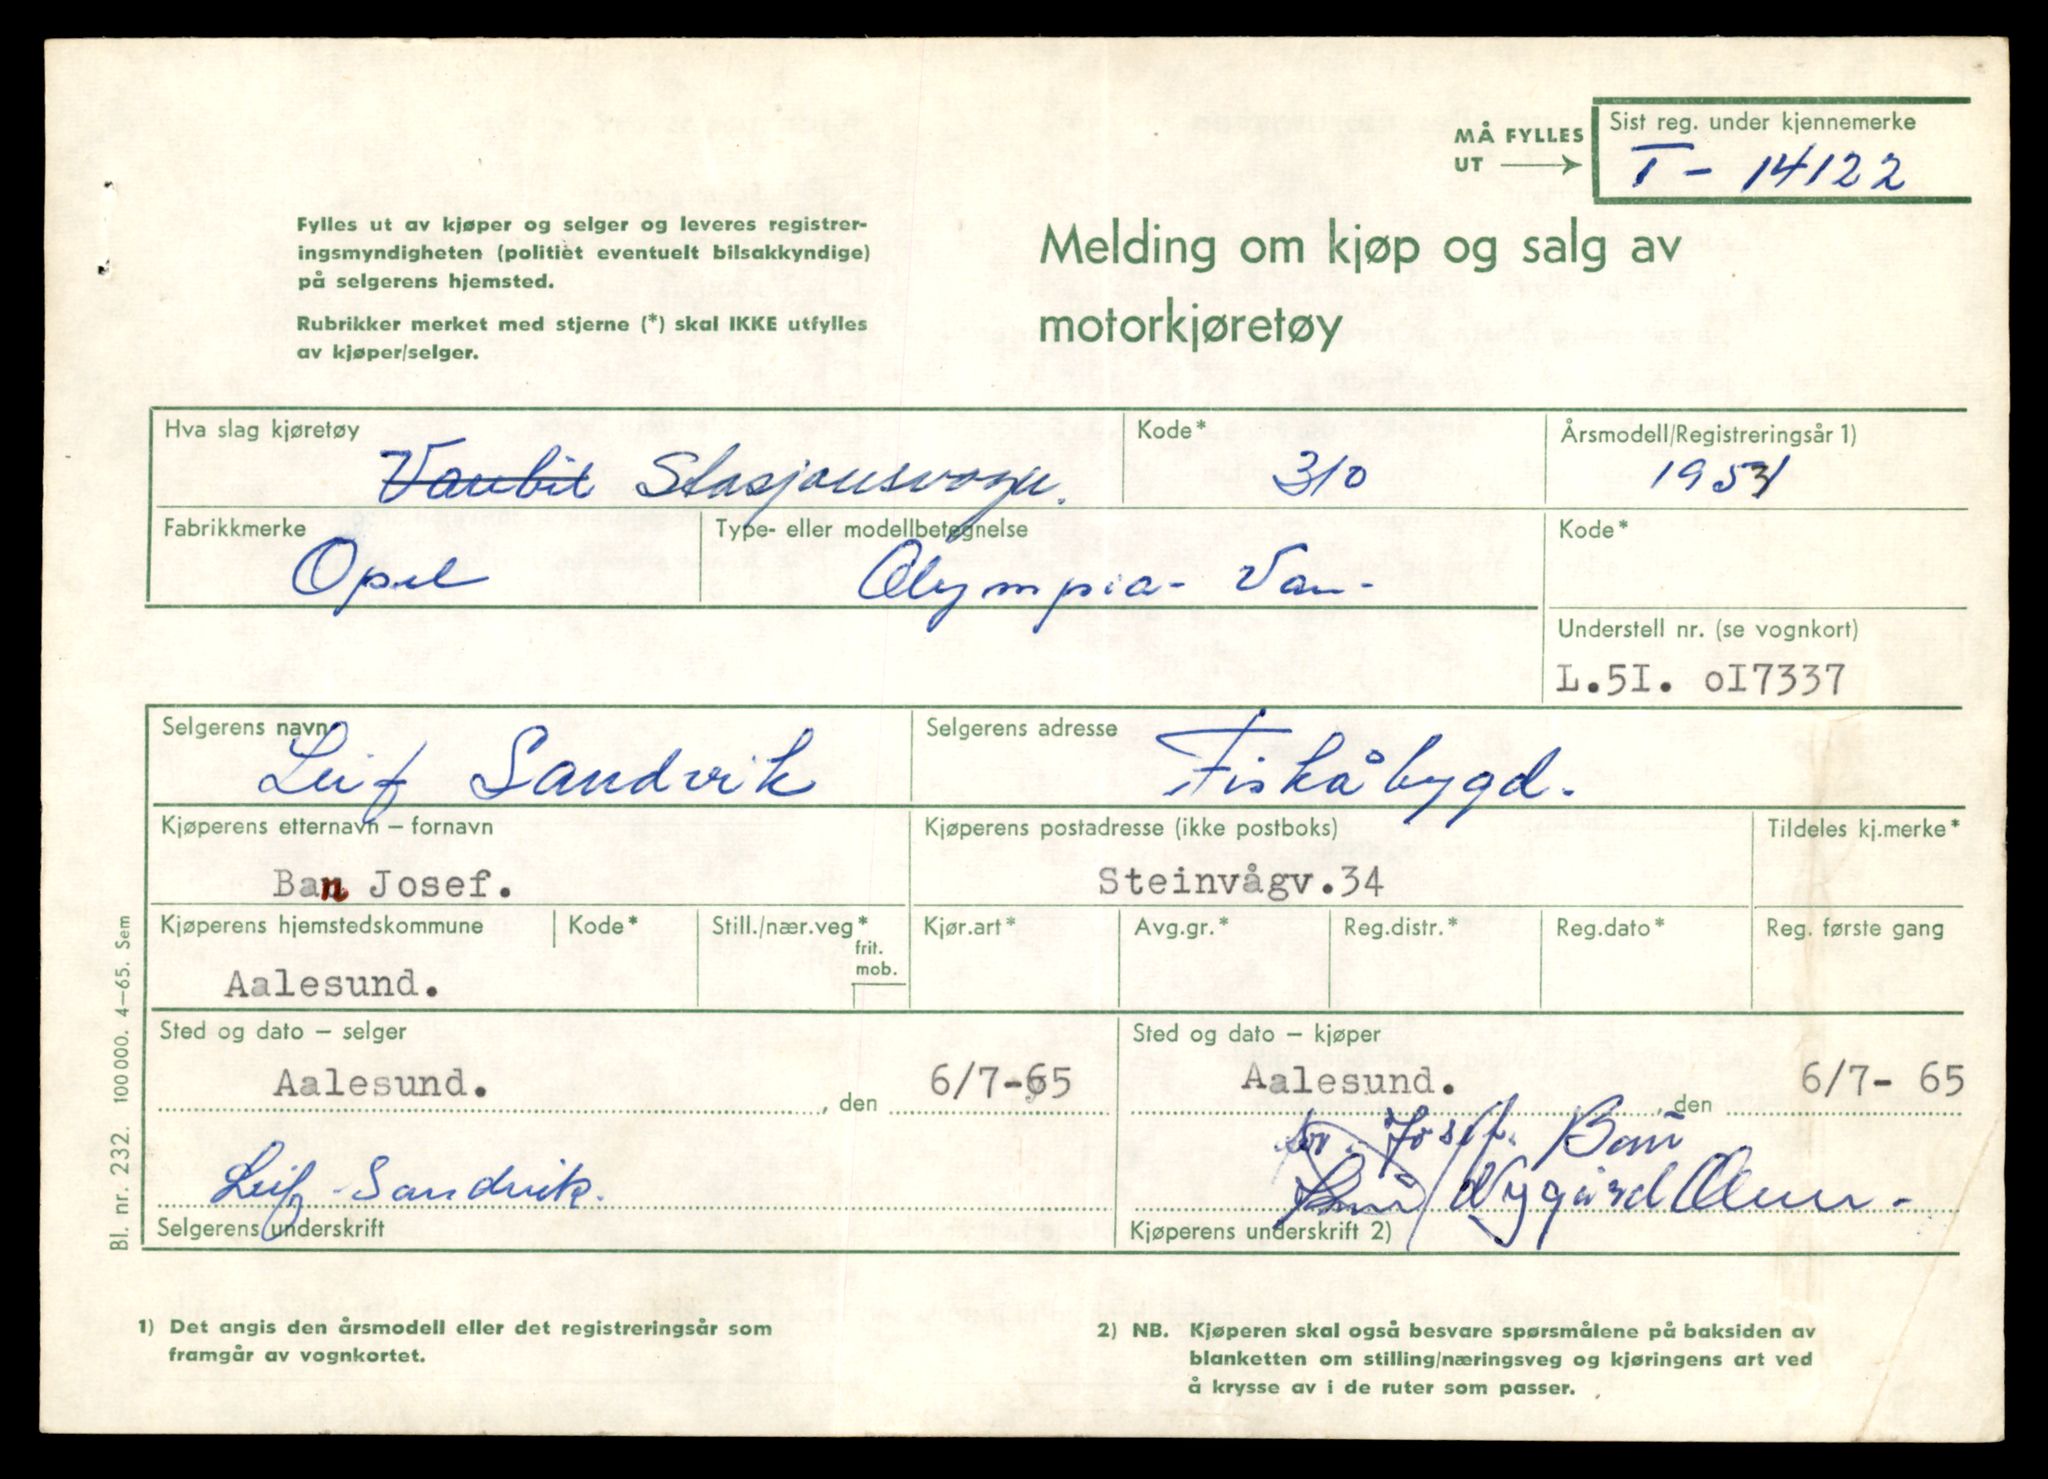 MÅ FYLLES
UT
Sist reg. under kjennemerke
T - 14122
Fylles ut av kjøper og selger og leveres registrer-
ingsmyndigheten (politiet eventuelt bilsakkyndige)
på selgerens hjemsted.
Rubrikker merket med stjerne (*) skal IKKE utfylles
av kjøper/selger.
Melding om kjøp og salg av
motorkjøretøy
Hva slag kjøretøy
Vanbil Stasjonsvogn.
Kode*
310
Årsmodell/Registreringsår 1)
Fabrikkmerke
Opel
Type- eller modellbetegnelse
Olympia - Van -
Kode*
Understell nr. (se vognkort)
L.5I. oI7337
Selgerens navn
Leif Sandvik
Selgerens adresse
Fiskåbygd.
Kjøperens etternavn – fornavn
Ban Josef.
Kjøperens postadresse (ikke postboks)
Steinvågv.34
Tildeles kj.merke*
Kjøperens hjemstedskommune
Aalesund.
Kode*
Still./nær.veg*
frit.
mob.
Kjør.art*
Avg.gr.*
Reg.distr.*
Reg.dato*
Reg. første gang
Sted og dato – selger
Aalesund. , den 6/7-65
Sted og dato – kjøper
Aalesund. , den 6/7- 65
Josef Ban
Leif Sandvik.
Nygård
Selgerens underskrift
Kjøperens underskrift 2)
Bl. nr. 232. 100 000. 4–65. Sem
1) Det angis den årsmodell eller det registreringsår som
framgår av vognkortet.
2) NB. Kjøperen skal også besvare spørsmålene på baksiden av
blanketten om stilling/næringsveg og kjøringens art ved
å krysse av i de ruter som passer.